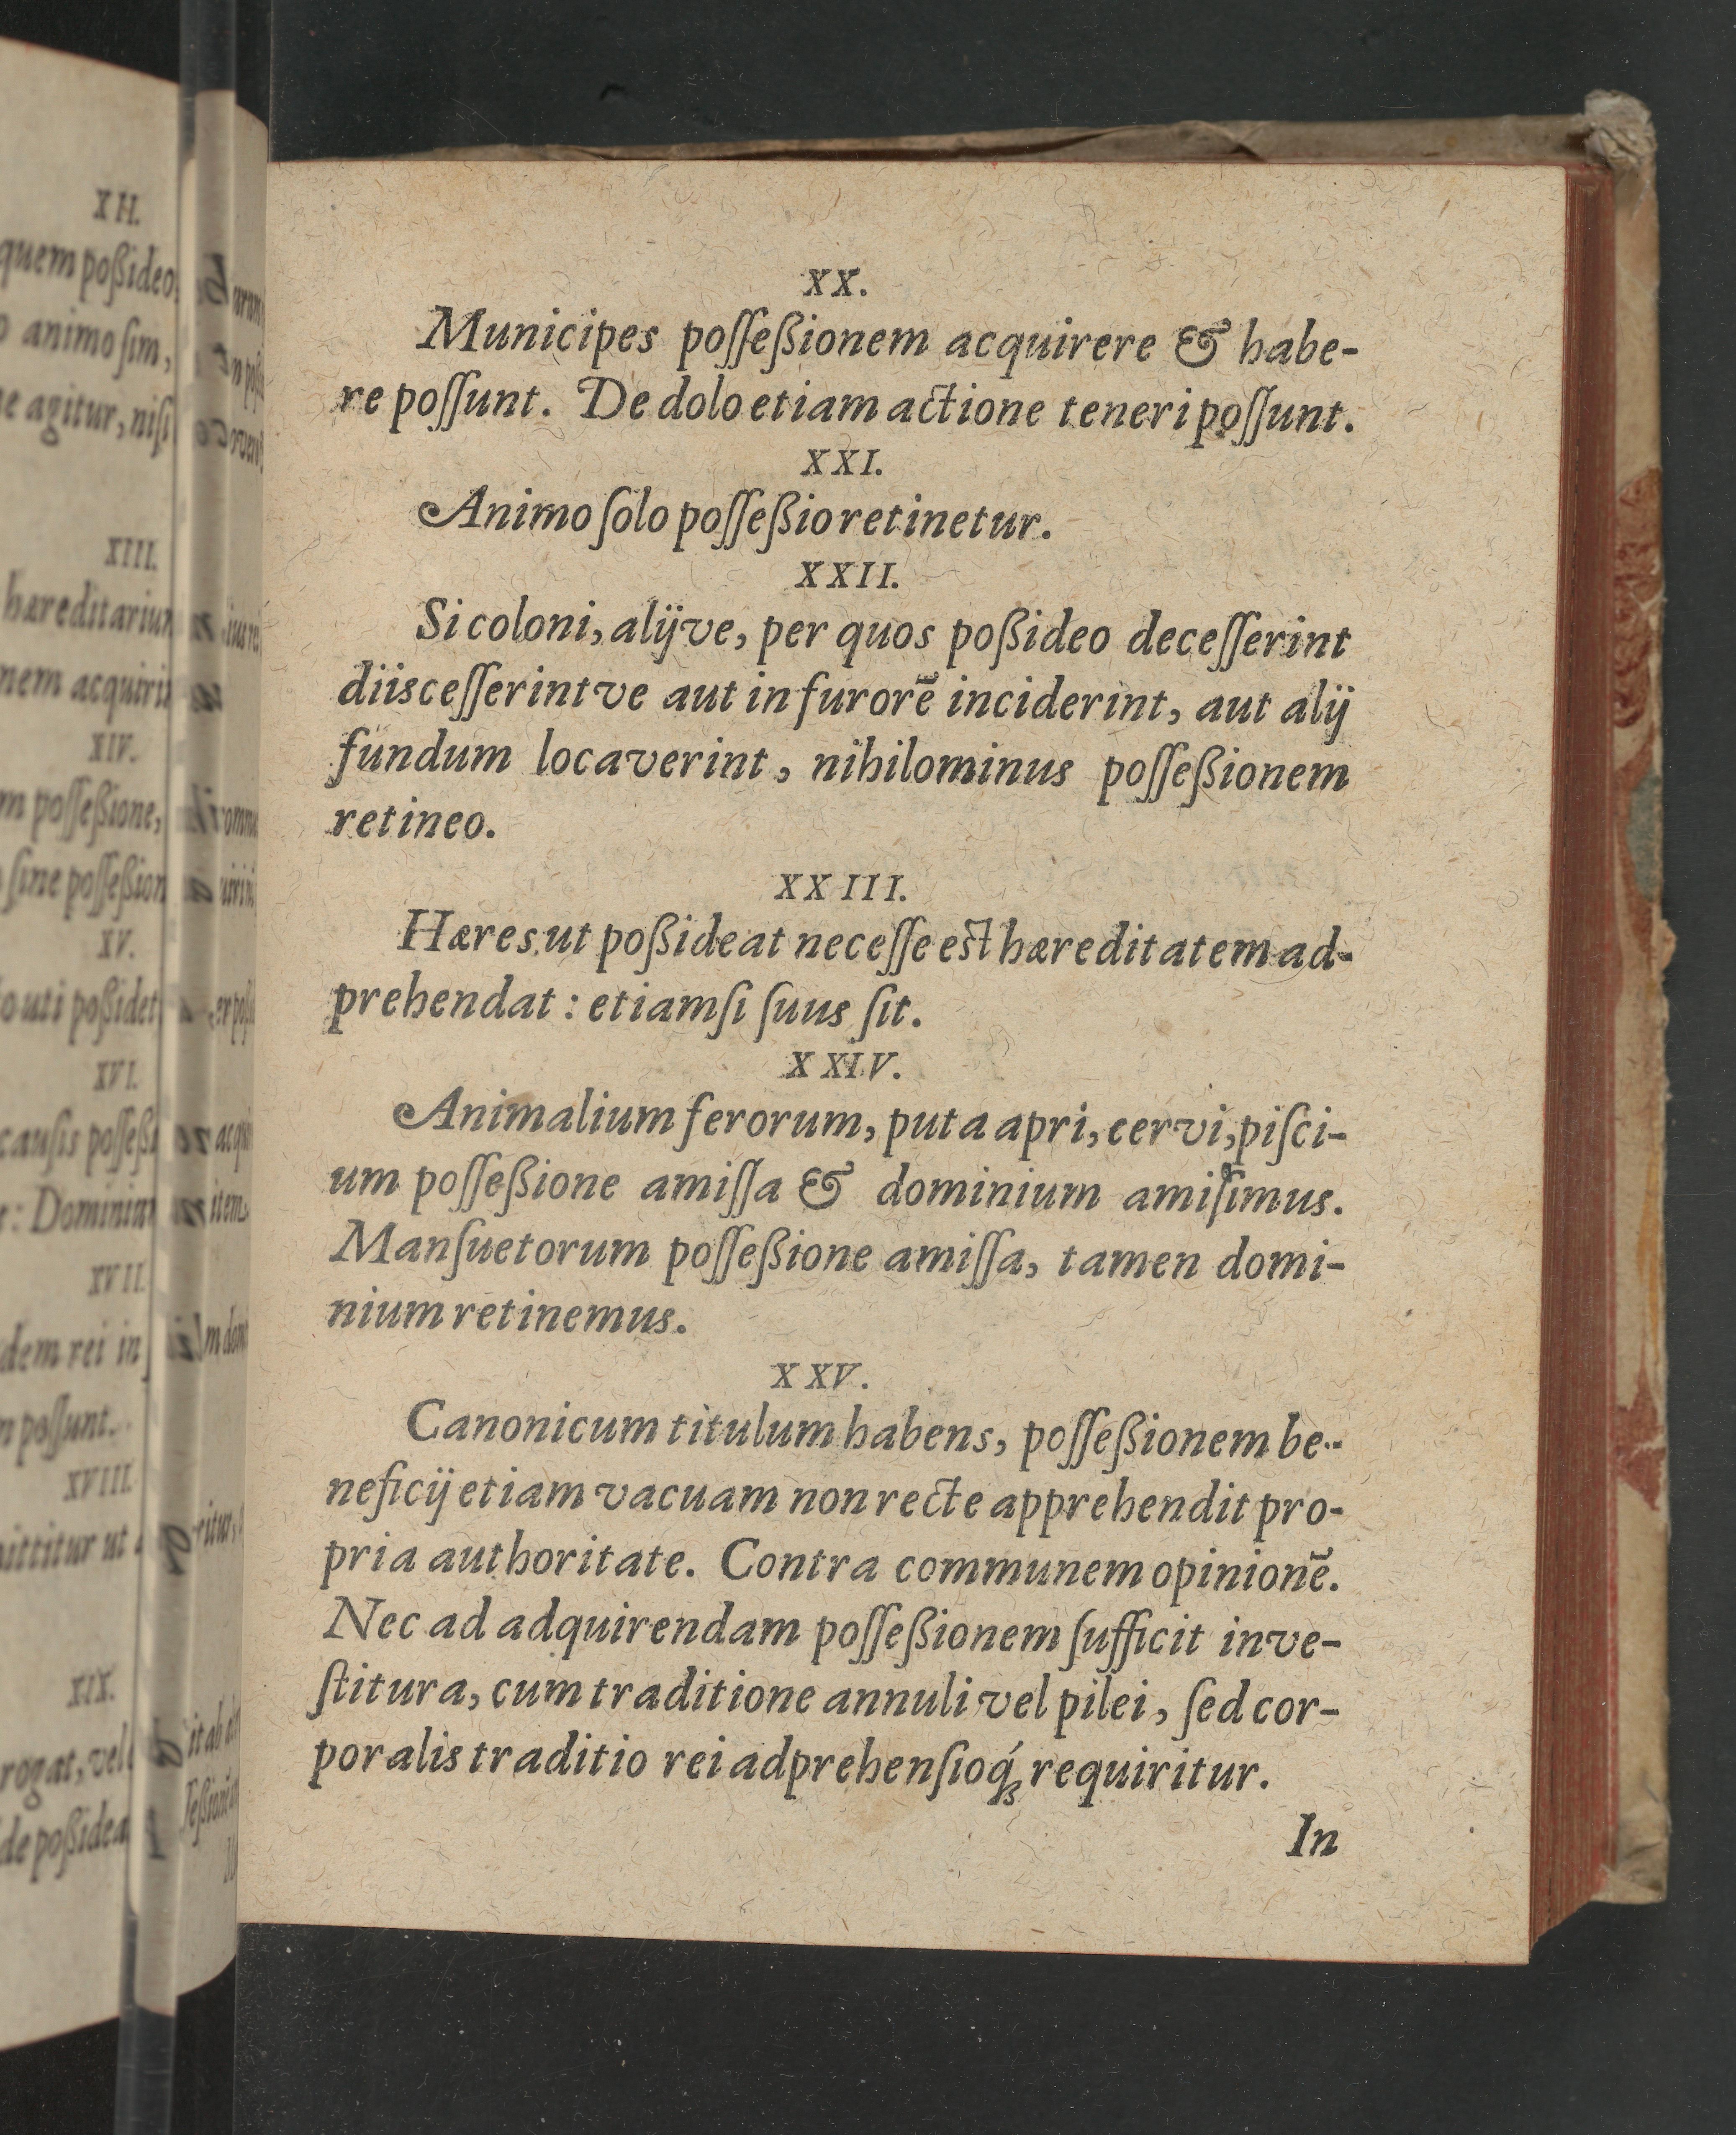 XX.
Municipes poſſeßionem acquirere & habe-
re poſſunt. De dolo etiam actione teneri poſſunt.
XXI.
Animo ſolo poſſeßio retinetur.
XXII.
Si coloni, alijve, per quos poßideo deceſſerint
diisceſſerintve aut in furorē inciderint, aut alij
fundum locaverint, nihilominus poſſeßionem
retineo.
XXIII.
Hæres ut poßideat neceſſe est hæreditatem ad-
prehendat: etiamſi ſuus ſit.
XXIV.
Animalium ferorum, puta apri, cervi, piſci-
um poſſeßione amiſſa & dominium amiſimus.
Manſuetorum poſſeßione amiſſa, tamen domi-
nium retinemus.
XXV.
Canonicum titulum habens, poſſeßionem be-
neficij etiam vacuam non recte apprehendit pro-
pria authoritate. Contra communem opinionē.
Nec ad adquirendam poſſeßionem ſufficit inve-
ſtitura, cum traditione annuli vel pilei, ſed cor-
poralis traditio rei adprehenſioq́ꝫ requiritur.
In
XII.
quem poßideo,
animo ſim,
agitur, niſi
XIII.
hæreditarium
acquirit
XIV.
poſſeßione,
ſine poſſeßion
XV.
uti poßidet
XVI.
cauſis poſſeßi
XVII.
rei in
poſſunt.
XVIII.
ut
XIX.